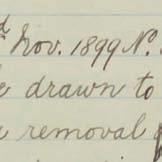 Nov. 1899 N.
drawn to
removal